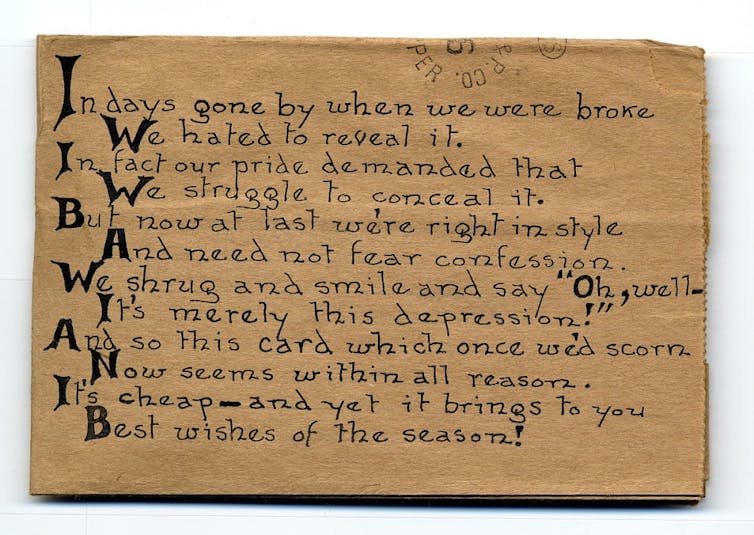 R.P. CO.
PER
In days gone by when we were broke
We hated to reveal it.
In fact our pride demanded that
We struggle to conceal it.
But now at last we're right in style
And need not fear confession.
We shrug and smile and say "Oh, well-
It's merely this depression!"
And so this card which once we'd scorn
Now seems within all reason.
It's cheap—and yet it brings to you
Best wishes of the season!